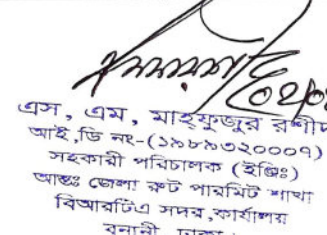 এস, এম, মাহ্ফুজুর রশীদ
আই,ডি নং-(১৯৮৯৩২০০০৭)
সহকারী পরিচালক (ইঞ্জিঃ)
আন্তঃ জেলা রুট পারমিট শাখা
বিআরটিএ সদর,কার্যালয়
বনানী ঢাকা